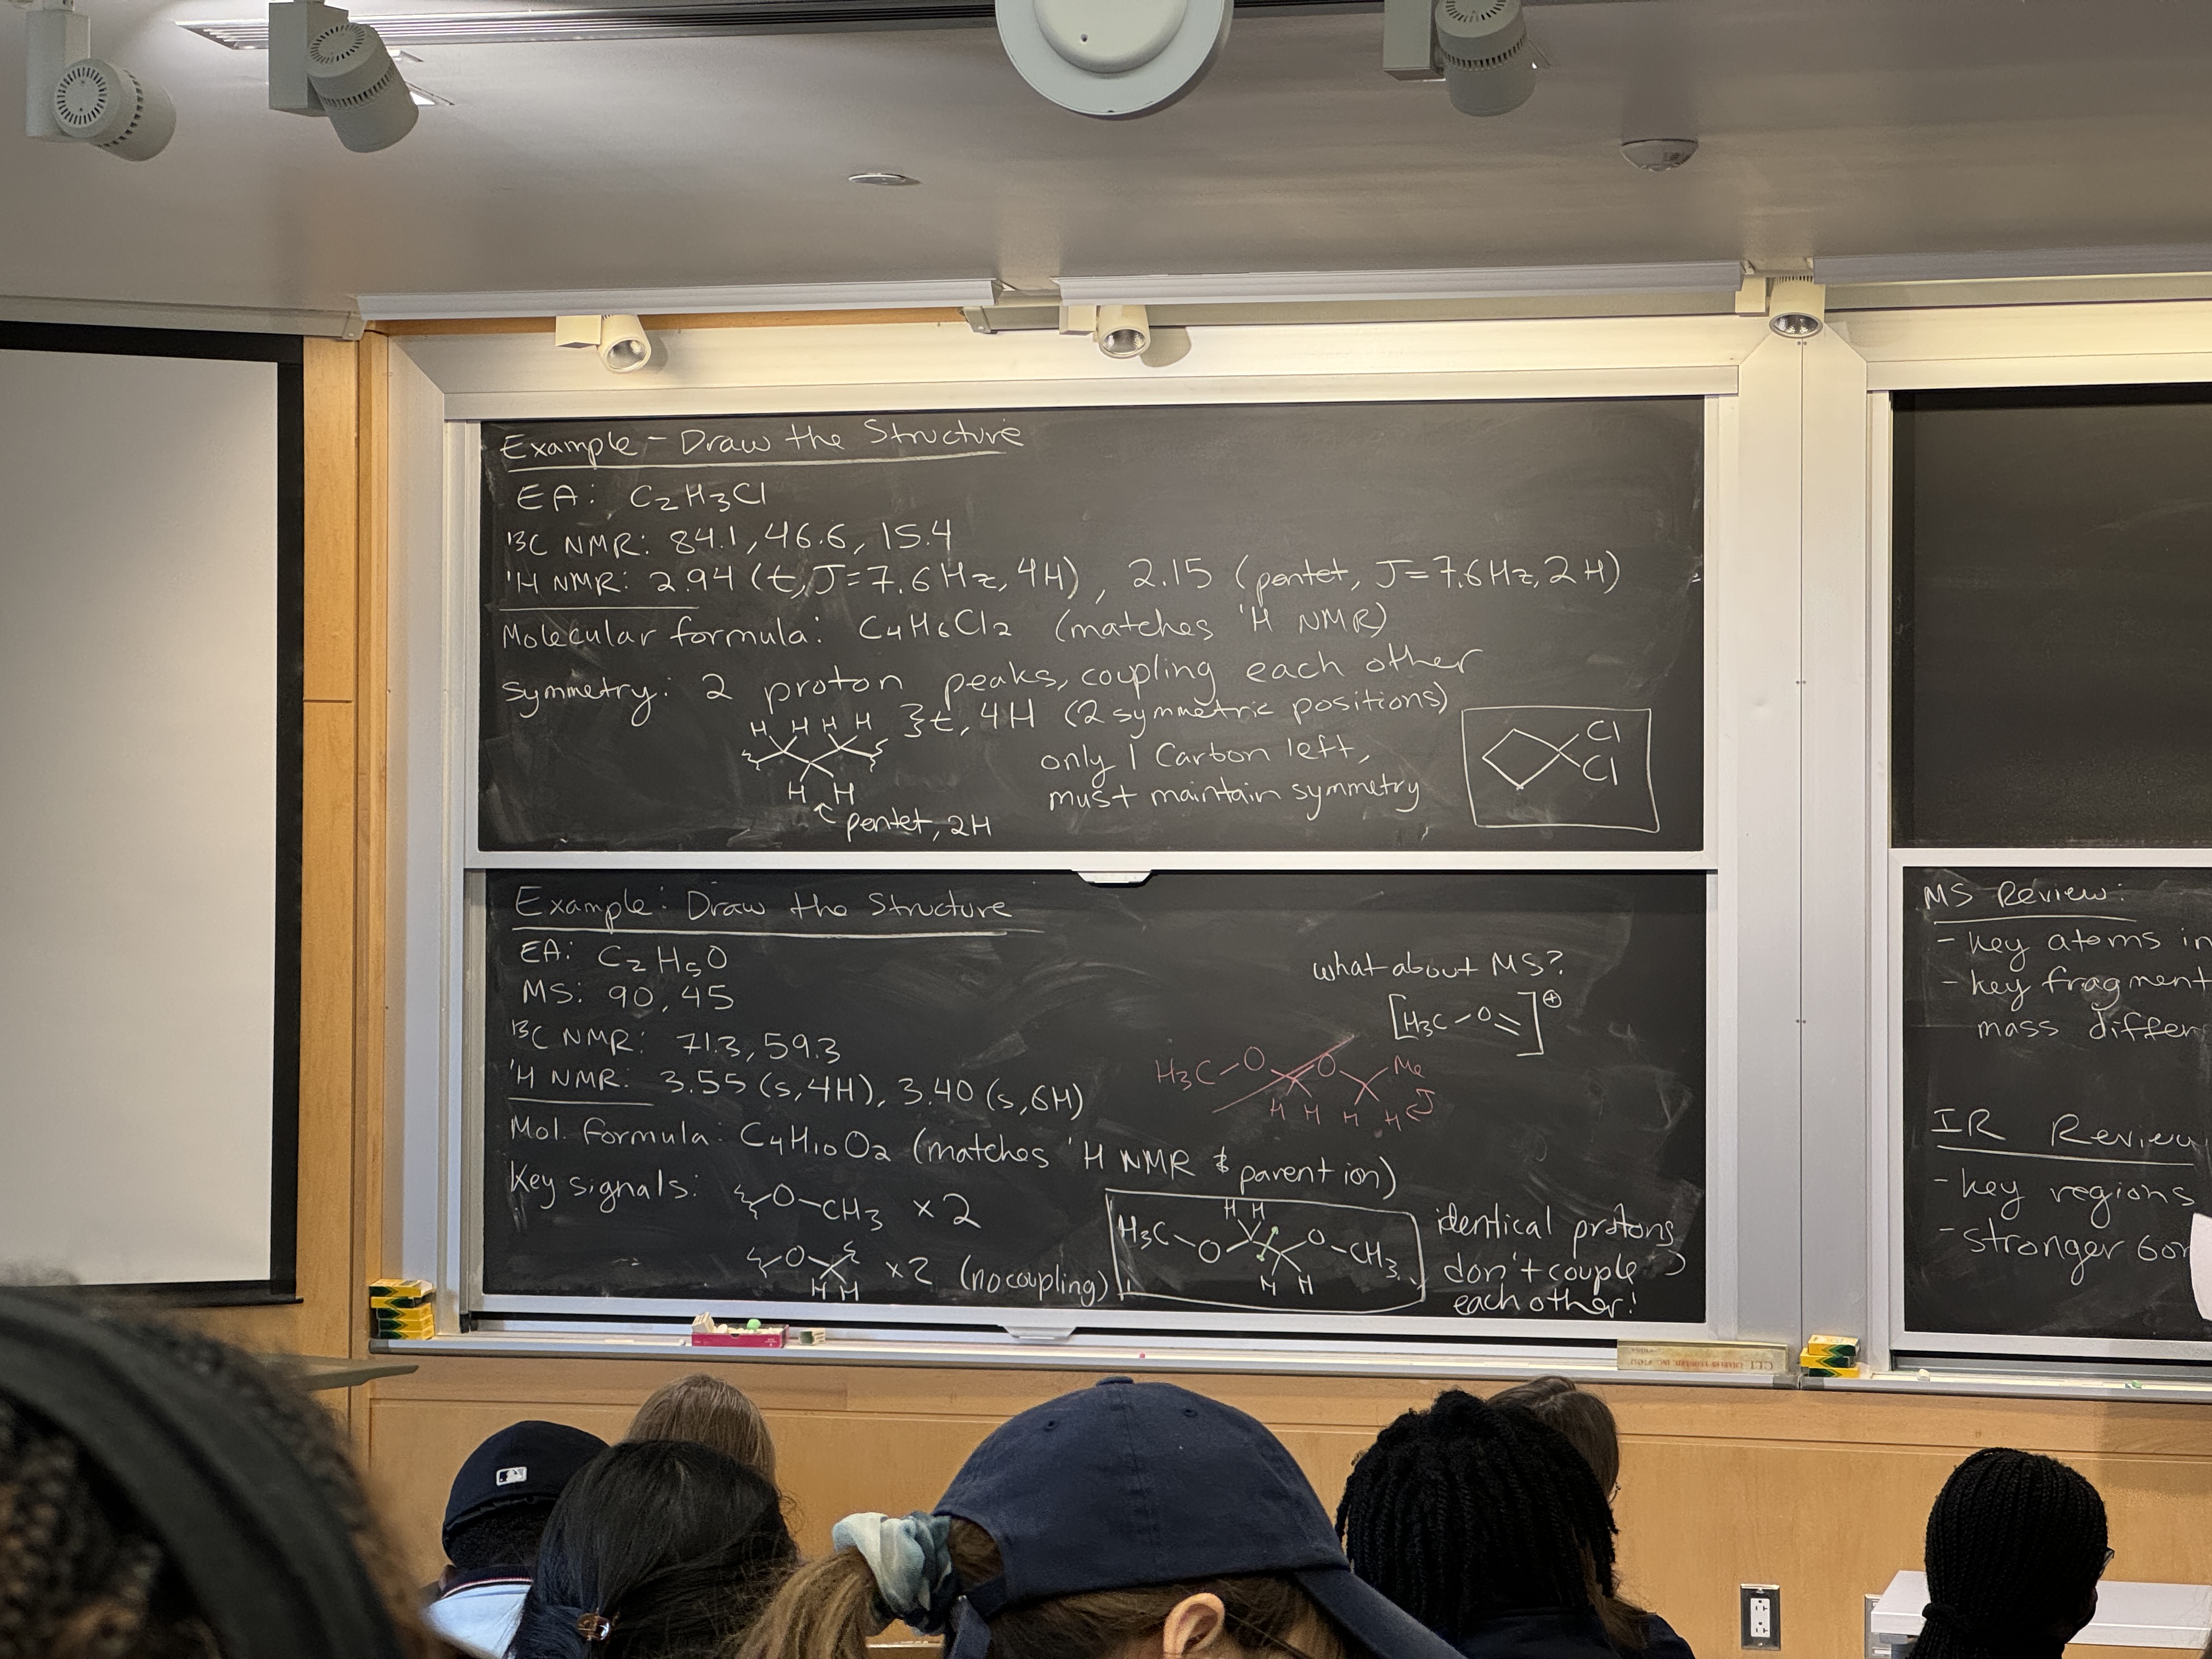 Example - Draw the Structure
EA: C₂H₃Cl
¹³C NMR: 84.1, 46.6, 15.4
¹H NMR: 2.94 (t, J=7.6Hz, 4H), 2.15 (pentet, J=7.6Hz, 2H)
Molecular formula: C₄H₆Cl₂ (matches ¹H NMR)
symmetry: 2 proton peaks, coupling each other
H H H H }t, 4H (2 symmetric positions)
only 1 Carbon left,
must maintain symmetry
H H
pentet, 2H
Cl
Cl
Example: Draw the Structure
EA: C₂H₅O
MS: 90, 45
¹³C NMR: 71.3, 59.3
¹H NMR: 3.55 (s, 4H), 3.40 (s, 6H)
Mol. formula: C₄H₁₀O₂ (matches ¹H NMR & parent ion)
Key signals: O-CH₃ x2
O H H x2 (no coupling)
what about MS?
[H₃C-O=]⊕
H₃C-O O Me
H H H H J
H H
H₃C O O-CH₃
H H
identical protons
don't couple
each other!
MS Review:
- key atoms in
- key fragment
mass differ
IR Review
- key regions
- stronger bon